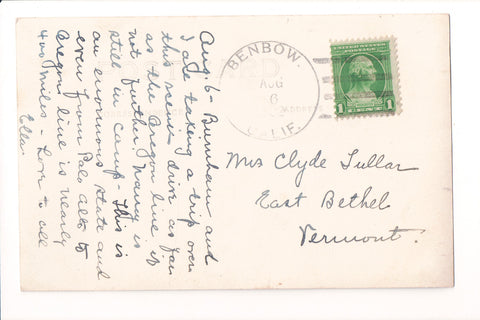 POST CARD
BENBOW
AUG
6
CALIF.
UNITED STATES POSTAGE
1 CENT 1
ADDRESS
Mrs Clyde Tullar
East Bethel
Vermont.
Aug. 6 - Burnham and
I are taking a trip over
this scenic drive as far
as the Oregon line, if
not further. Nancy is
still in camp - This is
an enormous state and
even from Palo Alto to
Oregon line is nearly
400 miles - Love to all
Ella